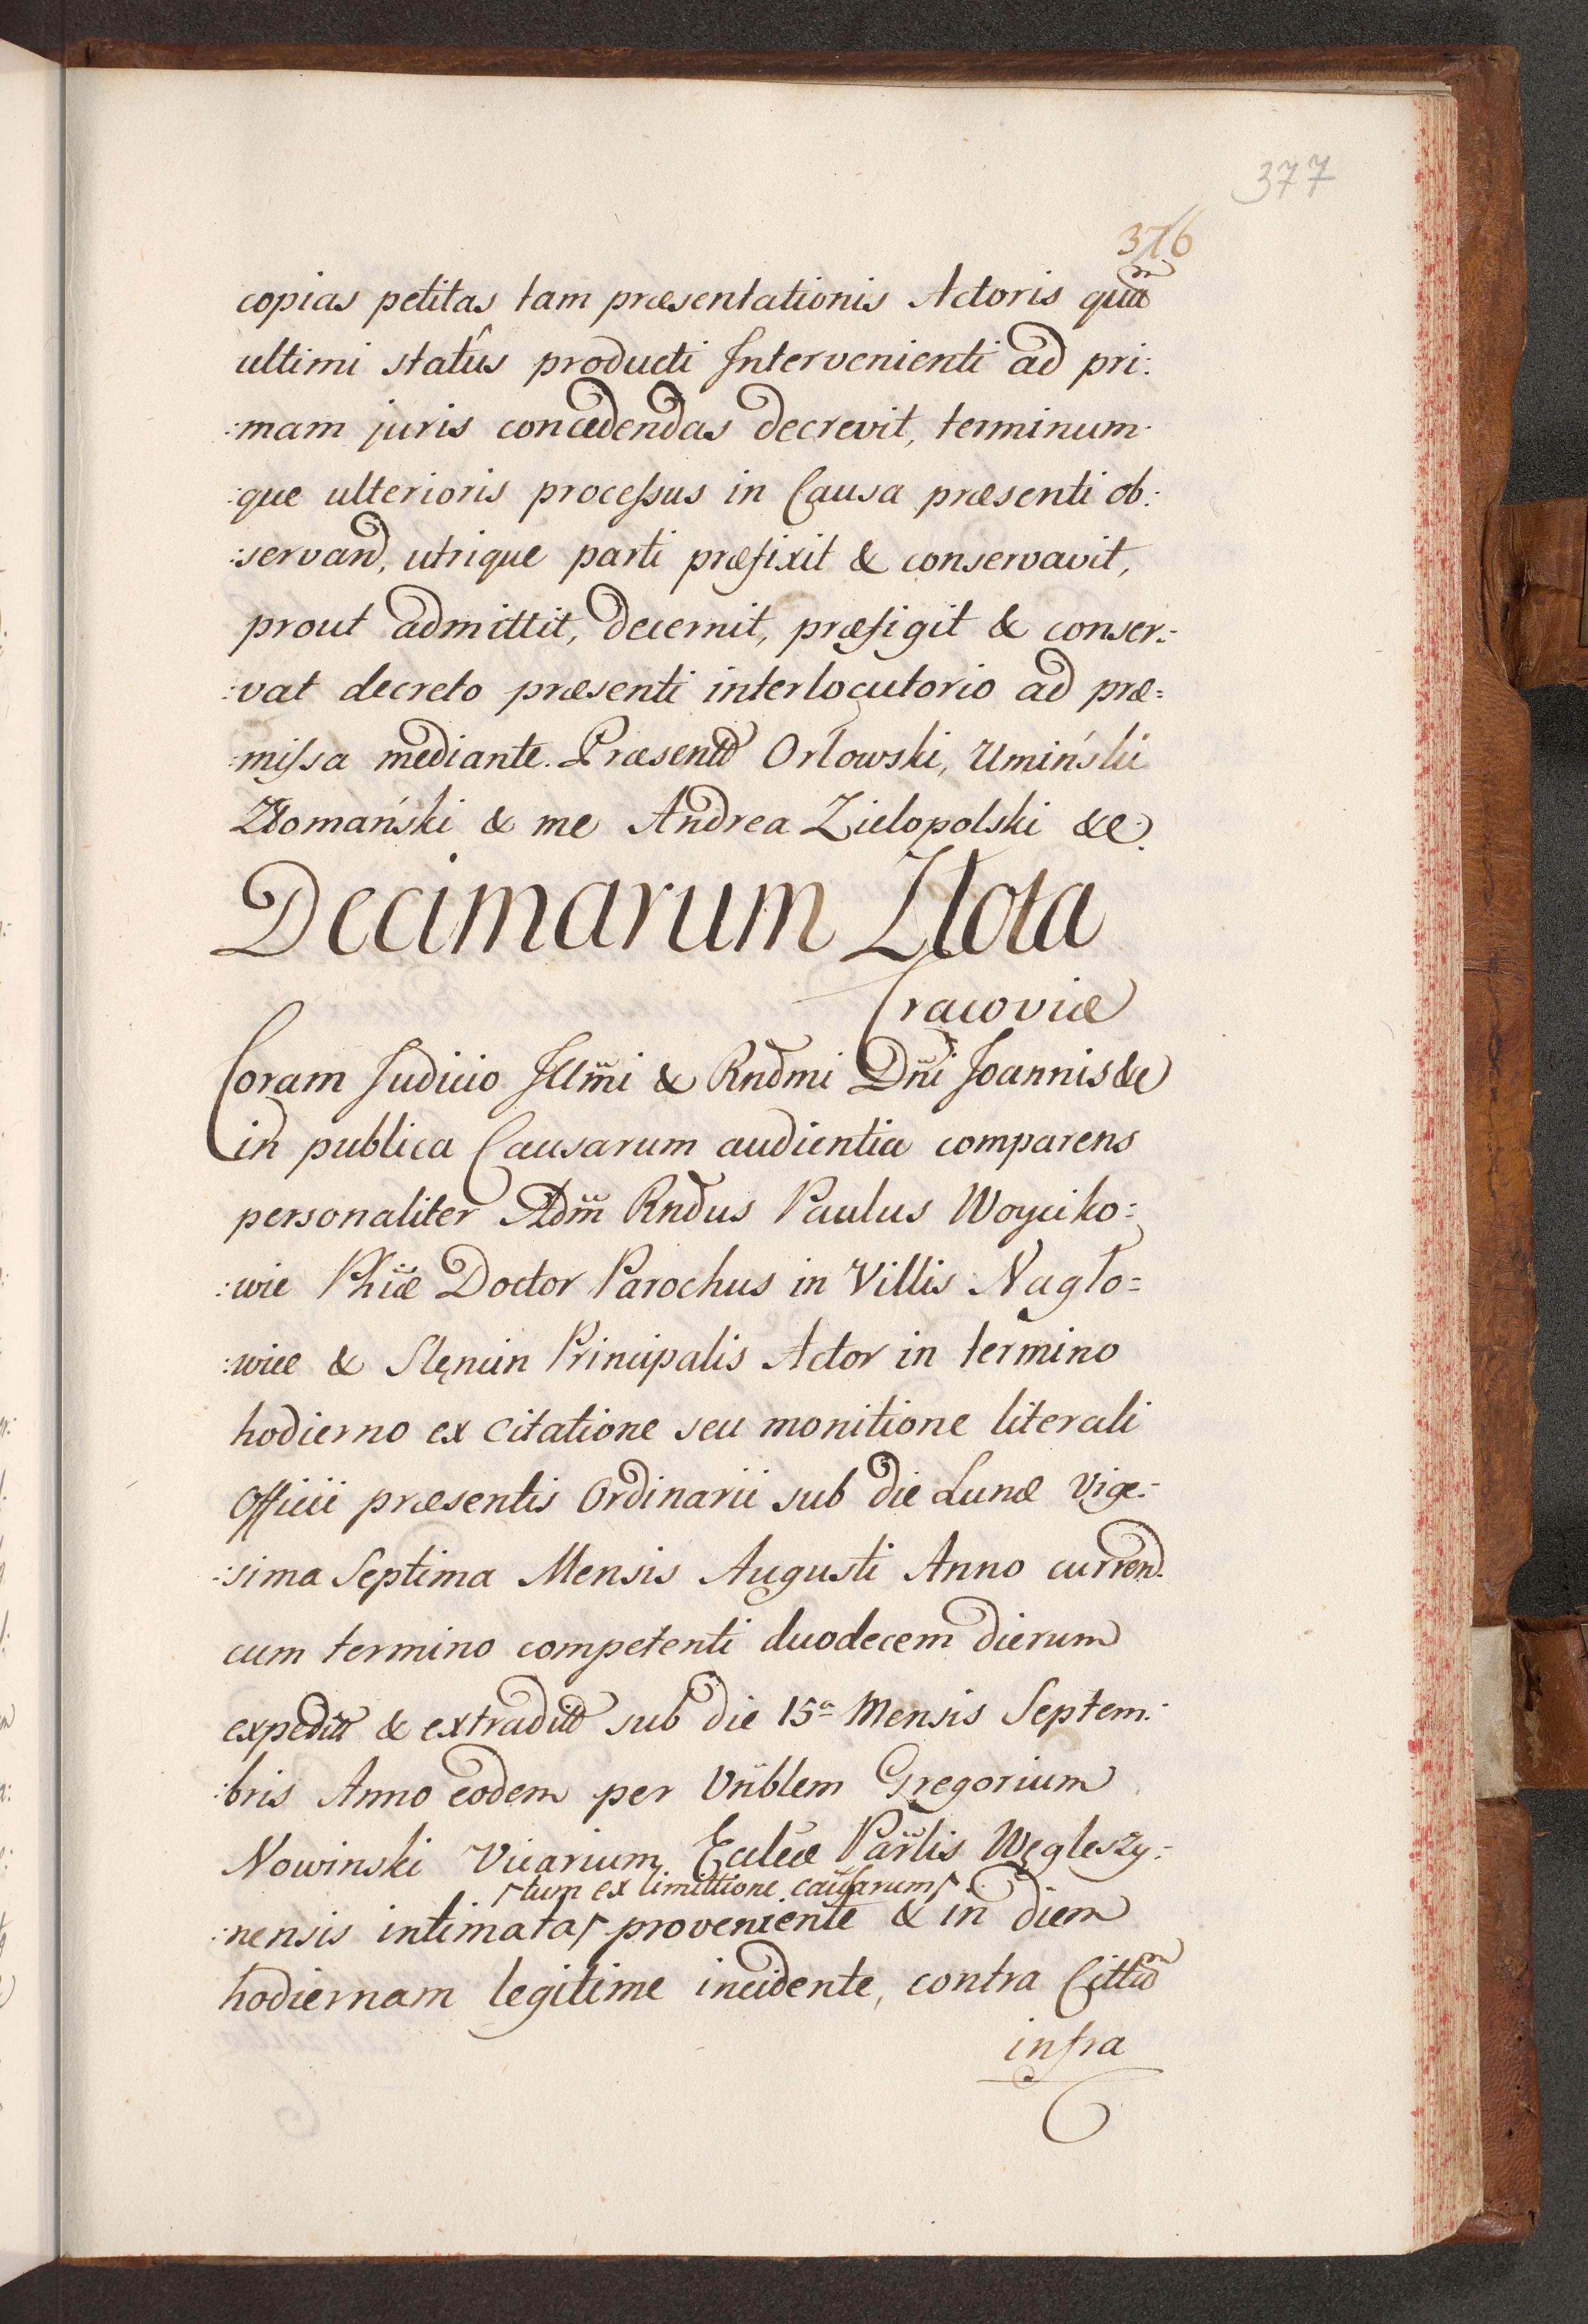 377
376
copias petitas tam præsentationis Actoris quam̃
ultimi statûs producti Intervenienti ad pri:
:mam juris concedendas decrevit, terminum
:que ulterioris processus in Causa præsenti ob:
:servand, utrique parti præfixit & conservavit,
prout admittit, decernit, præfigit & conser:
:vat decreto præsenti interlocutorio ad præ=
:missa mediante. Præsentt Orłowski, Umiński
Złomański & me Andrea Zielopolski &c.
Decimarum Złota
Cracoviæ
Coram Judicio Illm̃i & Rndmi Dñi Joannis &c
in publica Causarum audientia comparens
personaliter Adm̃ Rndus Paulus Woyciko:
:wic Phiæ Doctor Parochus in Villis Nagło=
:wice & Slęncin Principalis Actor in termino
hodierno ex citatione seu monitione literali
Officii præsentis Ordinarii sub die Lunæ Vige:
:sima Septima Mensis Augusti Anno currend.
cum termino competenti duodecem dierum
expeditt & extraditt sub die 15a Mensis Septem:
:bris Anno eodem per Vñblem Gregorium
Nowinski Vicarium Eccleæ Par̃lis Węgleszy:
tum ex limittione causarum
:nensis intimata proveniente & in diem
hodiernam legitime incidente, contra Cittum
infra